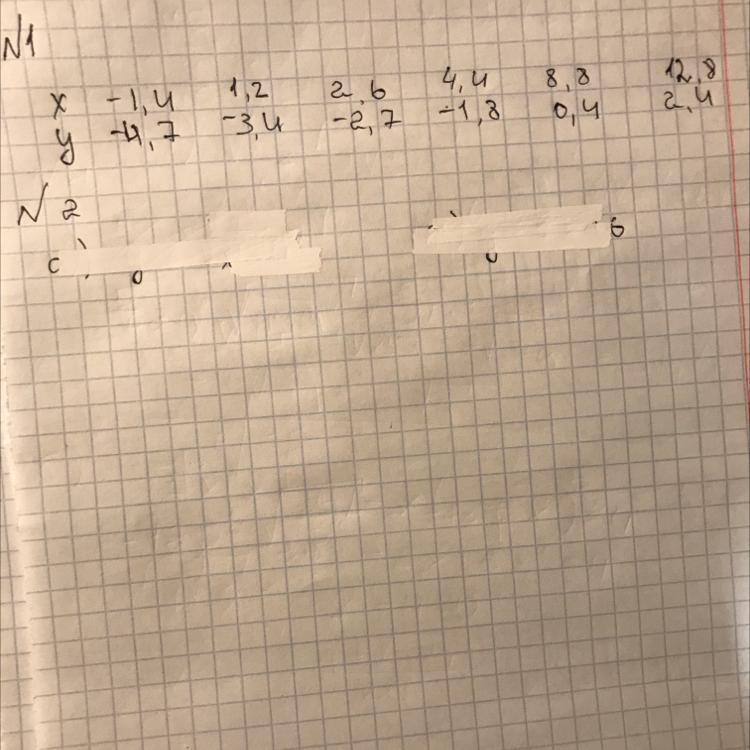 N1
x -1,4 1,2 2,6 4,4 8,8 12,8
y -4,7 -3,4 -2,7 -1,8 0,4 2,4
N 2